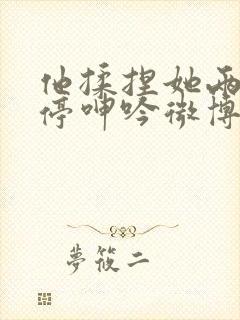 他揉捏她两
停呻吟微博
夢筱二